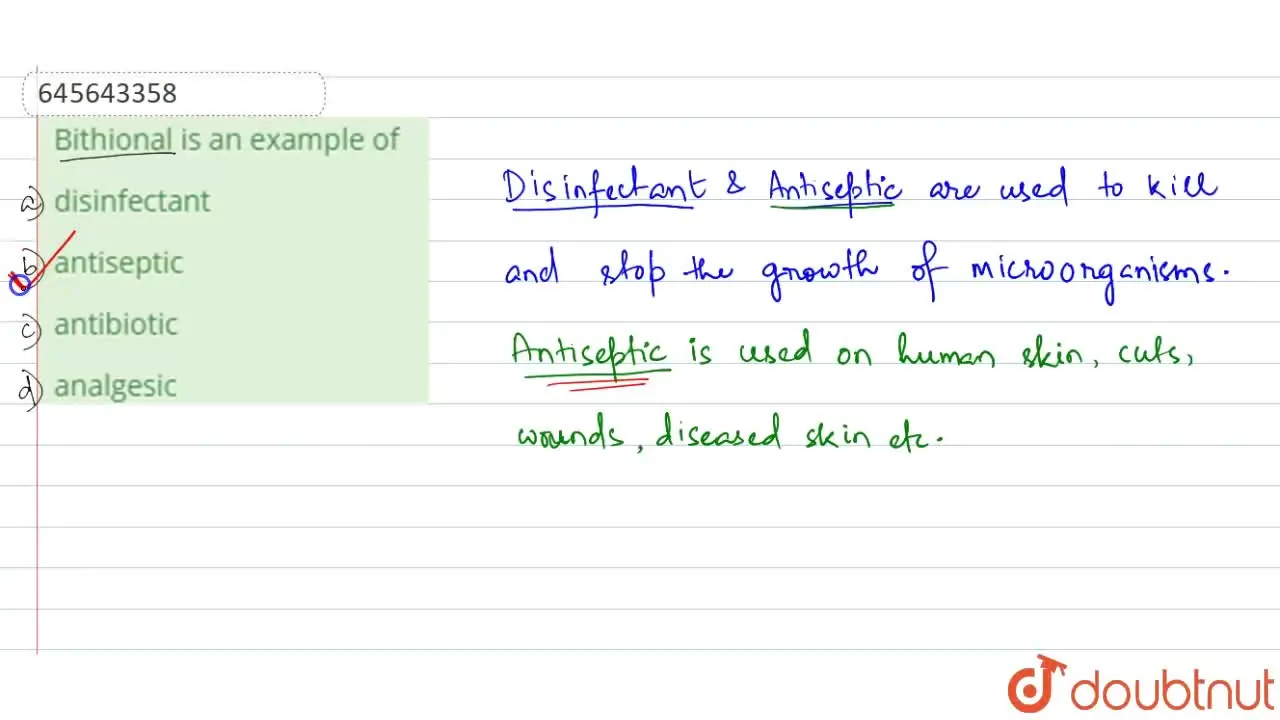 645643358
Bithional is an example of
a) disinfectant
b) antiseptic
c) antibiotic
d) analgesic
Disinfectant & Antiseptic are used to kill
and stop the growth of microorganisms.
Antiseptic is used on human skin, cuts,
wounds, diseased skin etc.
doubtnut